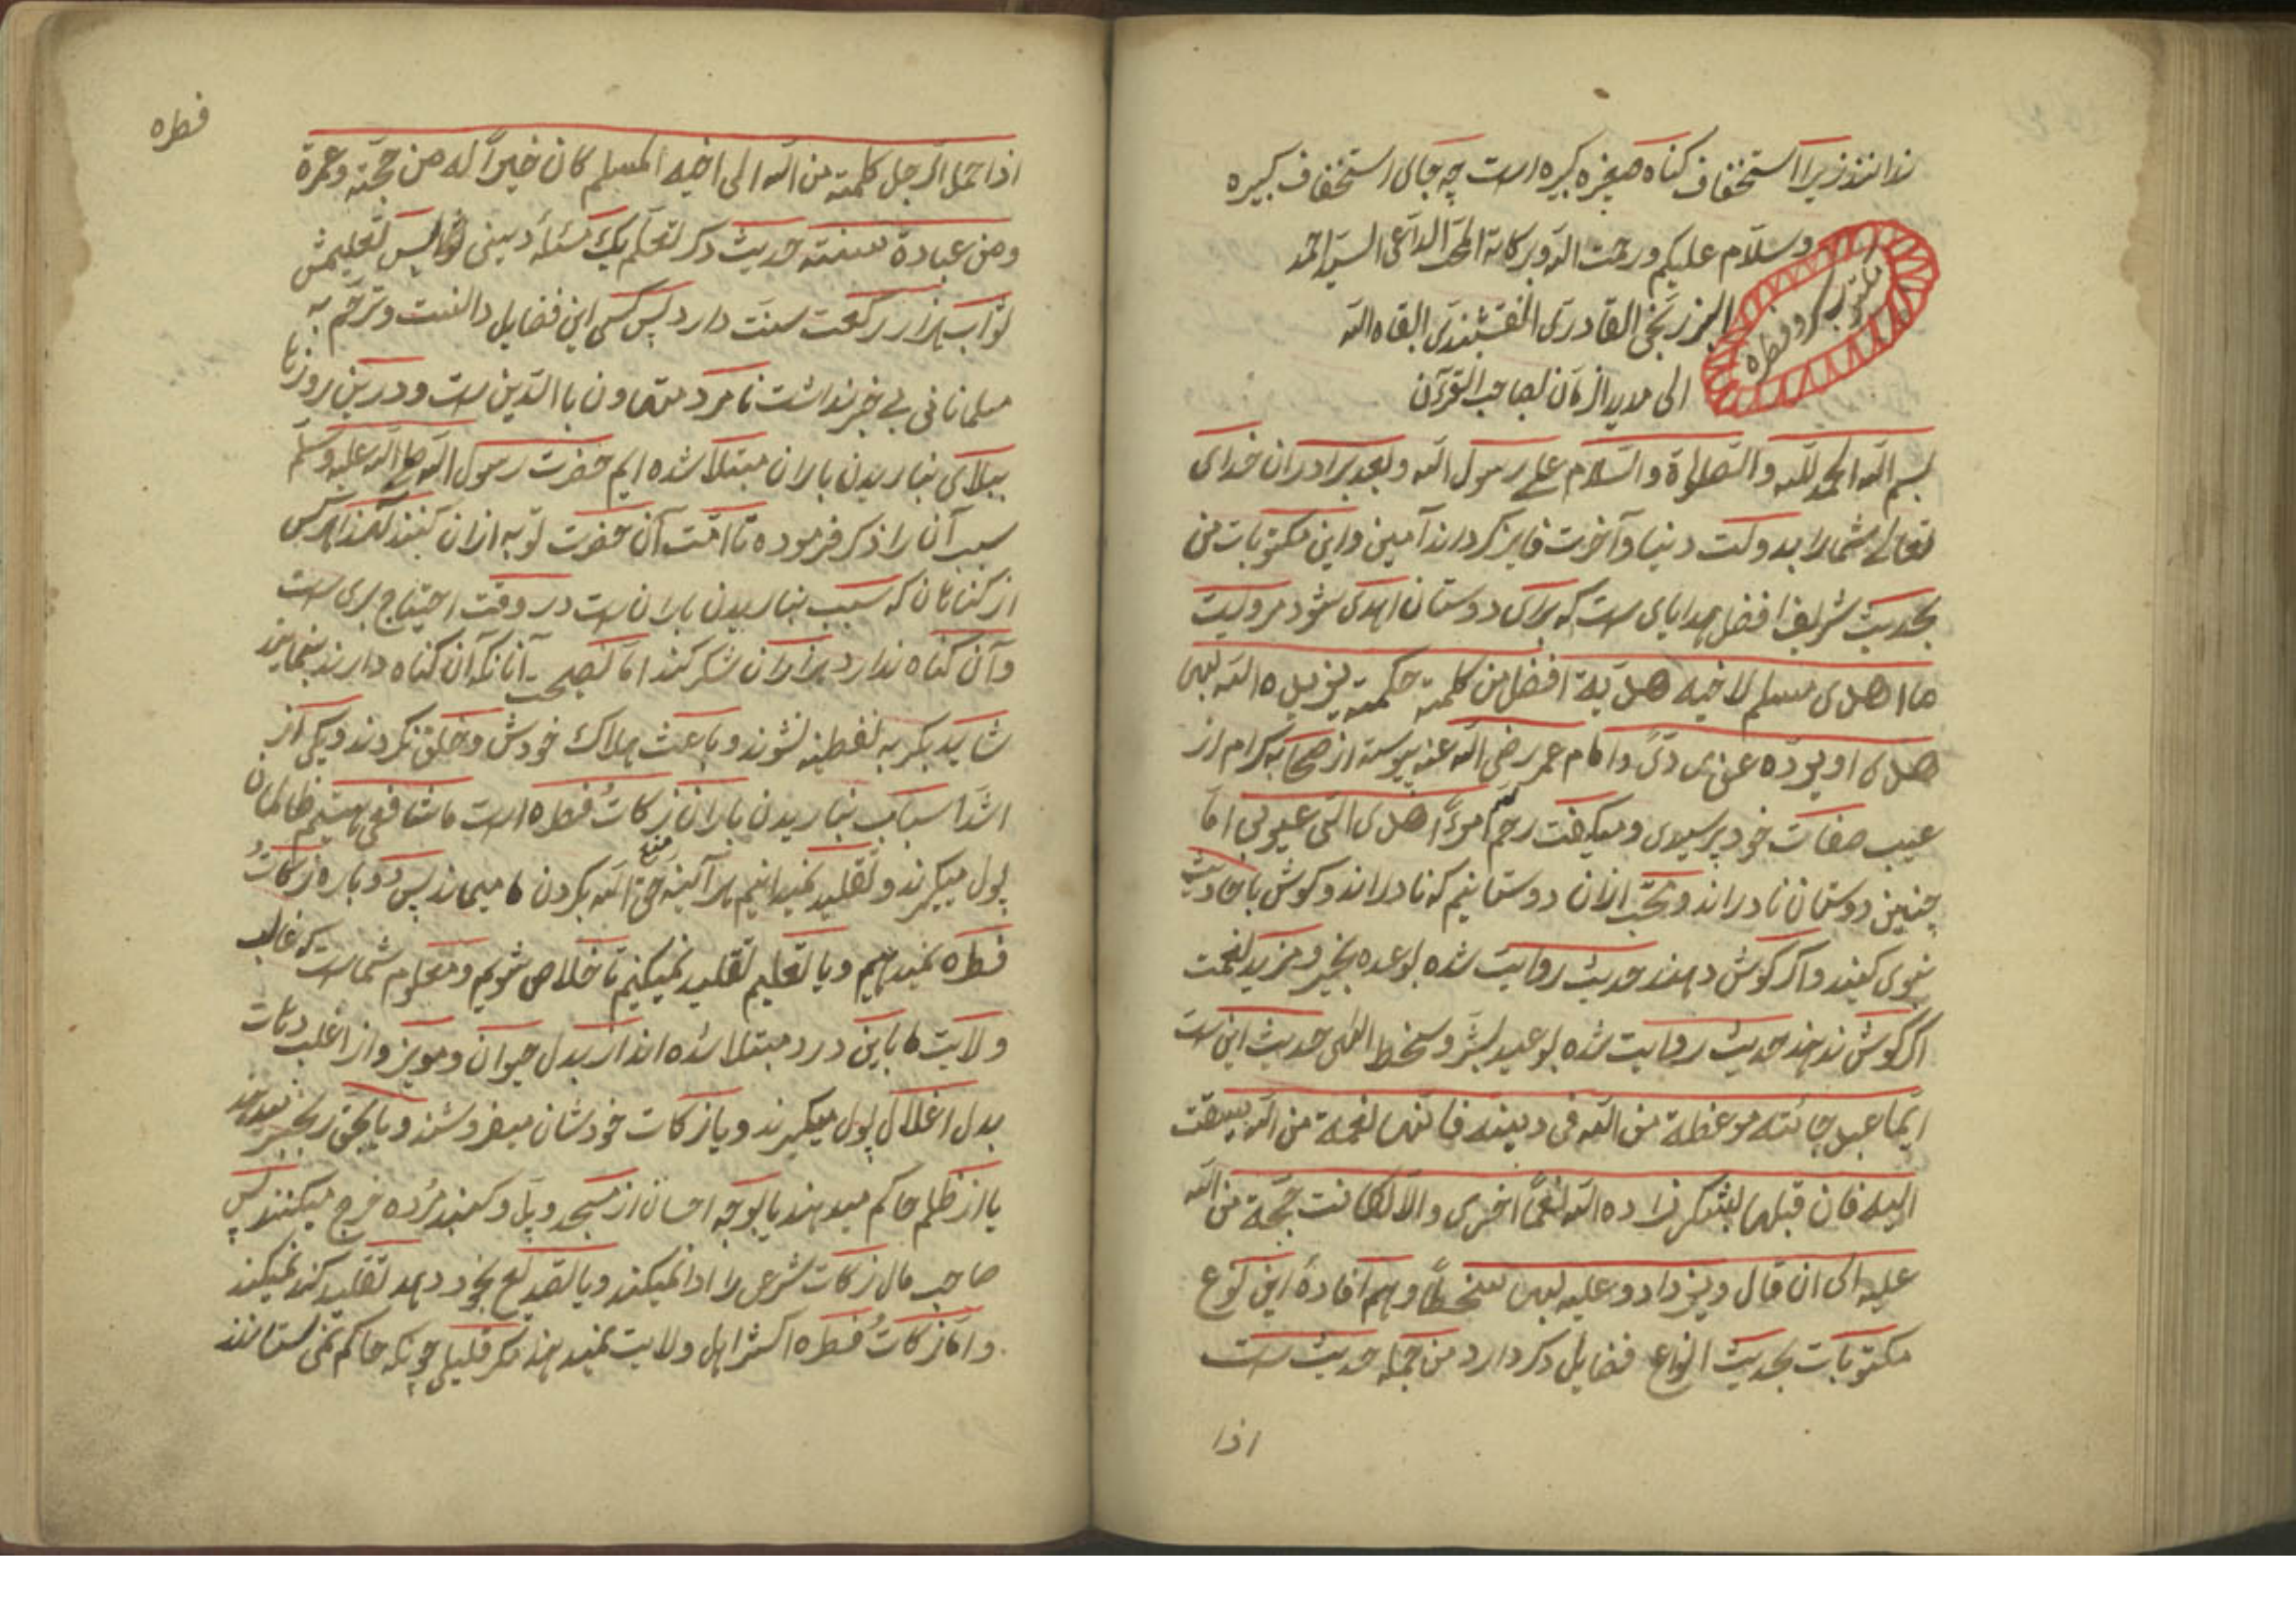 ندانند زیرا استخفاف کناه صغیره کبیره است چه جای استخفاف کبیره
وسلام علیکم ورحمت الله وبرکاته المحب الداعی السید احمد
البرزنجی القادری النقشبندی ابقاه الله
مکتوب کرو فطره
الی مدید الزمان بصاحب القرآن
بسم الله الحمد لله والصلوة والسلام علی رسول الله وبعد برادران خدای
تعالی شما را بدولت دنیا وآخرت فایز کرداند آمین واین مکتوبات من
بحدیث شریف افضل هدایای ست که برای دوستان اهدی شود مرویست
ما اهدی مسلم لاخیه هدیة افضل من کلمة حکمة یزیده الله بها
هدی او یرده عن ردی وامام عمر رضی الله عنه پیوسته از صحابه کرام از
عیب صفات خود پرسیدی ومیکفت رحم الله امرءً اهدی الی عیوبی اما
چنین دوستان نادراند ومحب ازان دوستانیم که نادراند وکوش باحادیث
نبوی کنند واکر کوش دهند حدیث روایت شده بوعده بخیر ومزید نعمت
اکر کوش ندهند حدیث روایت شده بوعید بشر وسخط الهی حدیث این ست
ایما عبد جائته موعظة من الله فی دینه فانها نعمة من الله سیقت
الیه فان قبلها بشکر زاده الله نعماً اخری والا لکانت حجة من الله
علیه الی ان قال ویزداد وعلیه بها سخطاً وهم افادهٔ این نوع
مکتوبات بحدیث انواع فضایل ذکر دارد من جمله حدیث ست
اذا
فطره
اذا حمل الرجل کلمة من الله الی اخیه المسلم کان خیراً له من حجة وعمرة
ومن عبادة سنة حدیث ذکر تعلم یک مسئلهٔ دینی تعلیمش
ثواب هزار رکعت سنت دارد پس کسی این فضایل دانست وترحم به
مسلمانانی بی خبر نداشت نامرد متهاون باالدین ست ودرین روزها
ببلای نباریدن باران مبتلا شده ایم حضرت رسول الله صلی الله علیه وسلم
سبب آن را ذکر فرموده تا امت آن حضرت توبه ازان کنند لهذا هرکس
از کناهان که سبب نباریدن باران ست در وقت احتیاج بری ست
وآن کناه ندارد هزاران شکر کند اما نصیحت آنانکه آن کناه دارند بنماید
شاید بکریه نغطینه نشوند وباعث هلاک خودش وخلق نکردند ویکی از
اشد اسباب نباریدن باران زکات فطره است ما شافعی هستیم ظالمان
پول میکیرند وتقلید نمیدانیم هرآئینه منع حق الله بکردن ما میماند پس دوباره زکات و
فطره نمیدهیم وبا تعلیم تقلید نمیکنیم تا خلاص شویم ومعلوم شماست که غالب
ولایت ما باین درد مبتلا شده اند از بدل حیوان ومویز واز اغلب دهات
بدل اغلال پول میکیرند ویا زکات خودشان میفروشند ویا بحق زنجیر میدهند
یا از ظلم حاکم میدهند یا بوجه احسان از مسجد وپل وکنبد مرده خرج میکنند پس
صاحب مال زکات شرعی را ادا نمیکند ویا القدیع بخود دهد تقلید کند نمیکند
واما زکات فطره اکثر اهل ولایت نمیدهند مکر قلیلی چونکه حاکم نمی ستانند